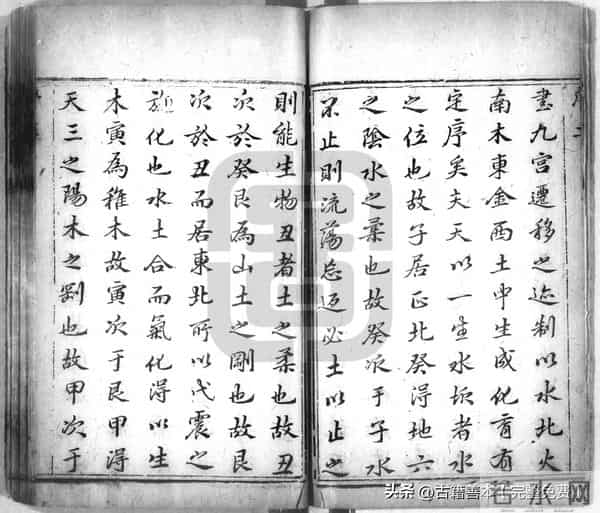 書九宮遷移之迹制以水北火
南木東金西土中生成化育有
定序矣夫天以一生水坎者水
之位也故子居正北癸得地六
之陰水之柔也故癸次于子水
不止則流蕩忘返必土以止之
則能生物丑者土之柔也故丑
次於癸艮為山土之剛也故艮
次於丑而居東北所以代震之
施化也水土合而氣化得以生
木寅為稚木故寅次于艮甲得
天三之陽木之剛也故甲次于
头条 @古籍善本工完整免费